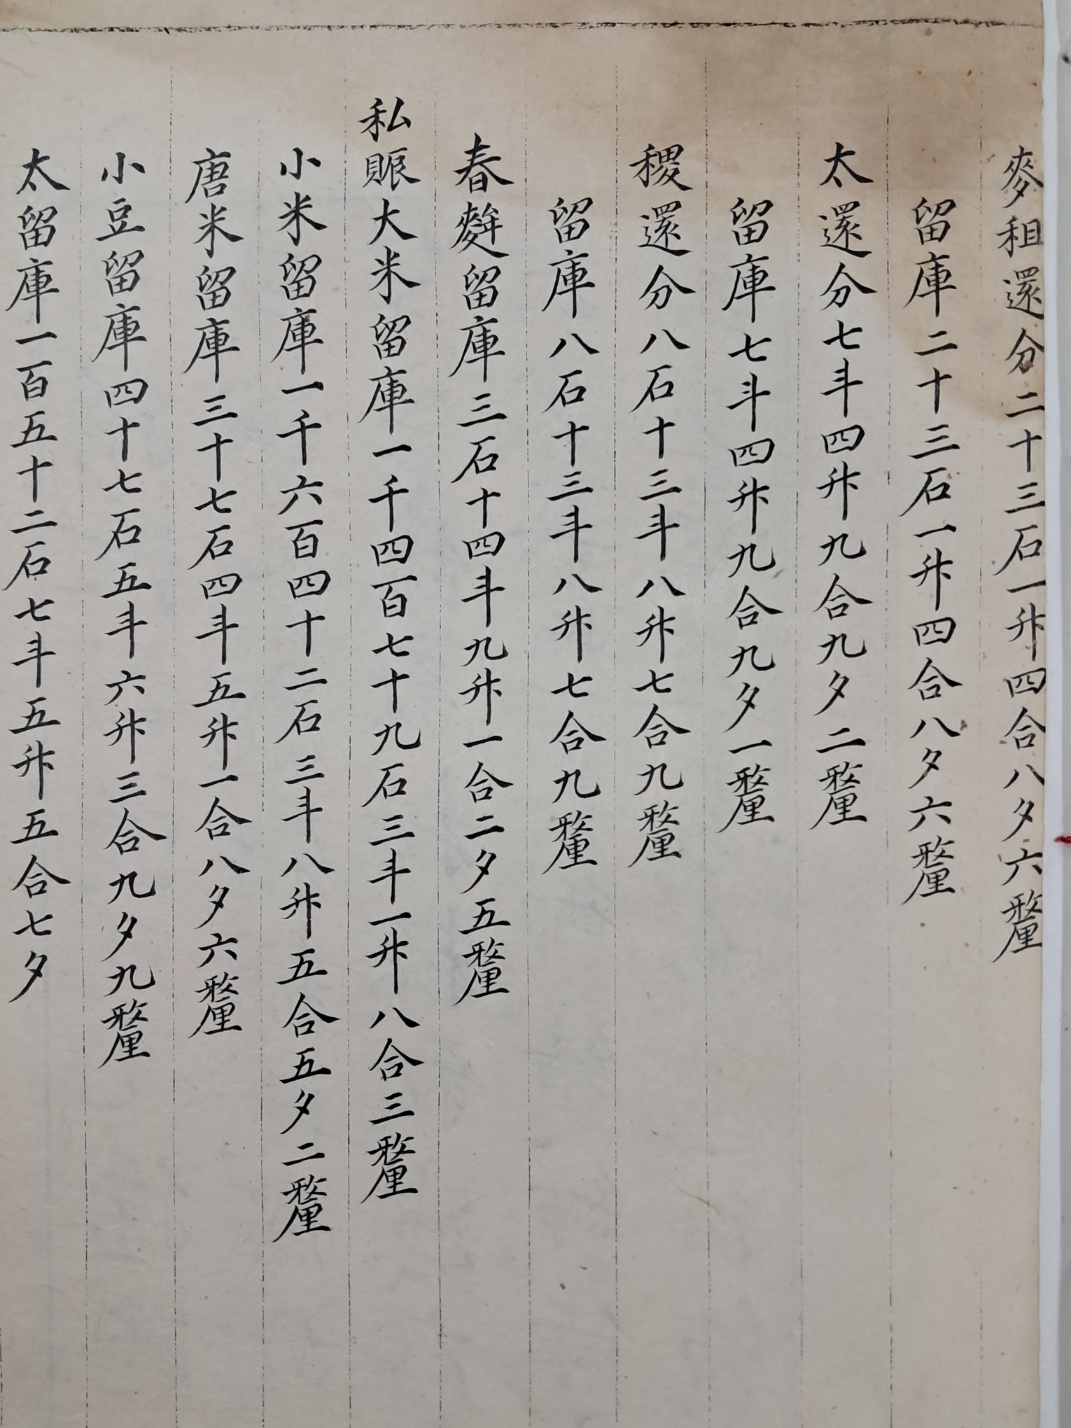 麥租還分二十三石一升四合八夕六釐
留庫二十三石一升四合八夕六釐
太還分七斗四升九合九夕二釐
留庫七斗四升九合九夕一釐
稷還分八石十三斗八升七合九釐
留庫八石十三斗八升七合九釐
春麰留庫三石十四斗九升一合二夕五釐
私賑大米留庫一千四百七十九石三斗一升八合三釐
小米留庫一千六百四十二石三斗八升五合五夕二釐
唐米留庫三十七石四斗五升一合八夕六釐
小豆留庫四十七石五斗六升三合九夕九釐
太留庫一百五十二石七斗五升五合七夕